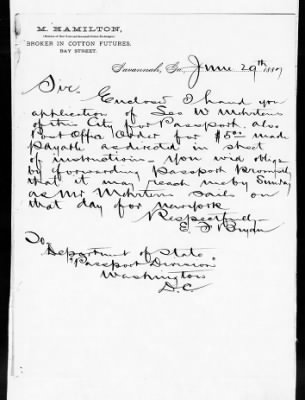 M. HAMILTON,
BROKER IN COTTON FUTURES,
BAY STREET.
Savannah, Ga., June 29th 1889
Sir.
Enclosed I hand you
application of Geo W Mehrtens
of this City for Passport. also
Post Office Order for $5.00 made
payable as directed in sheet
of instructions. You will oblige
by forwarding Passport promptly
that it may reach me by Sunday
as Mr Mehrtens sails on
that day for New York
Respectfully
E. F. Bryan
To
Department of State
"Passport Division"
Washington
D.C.